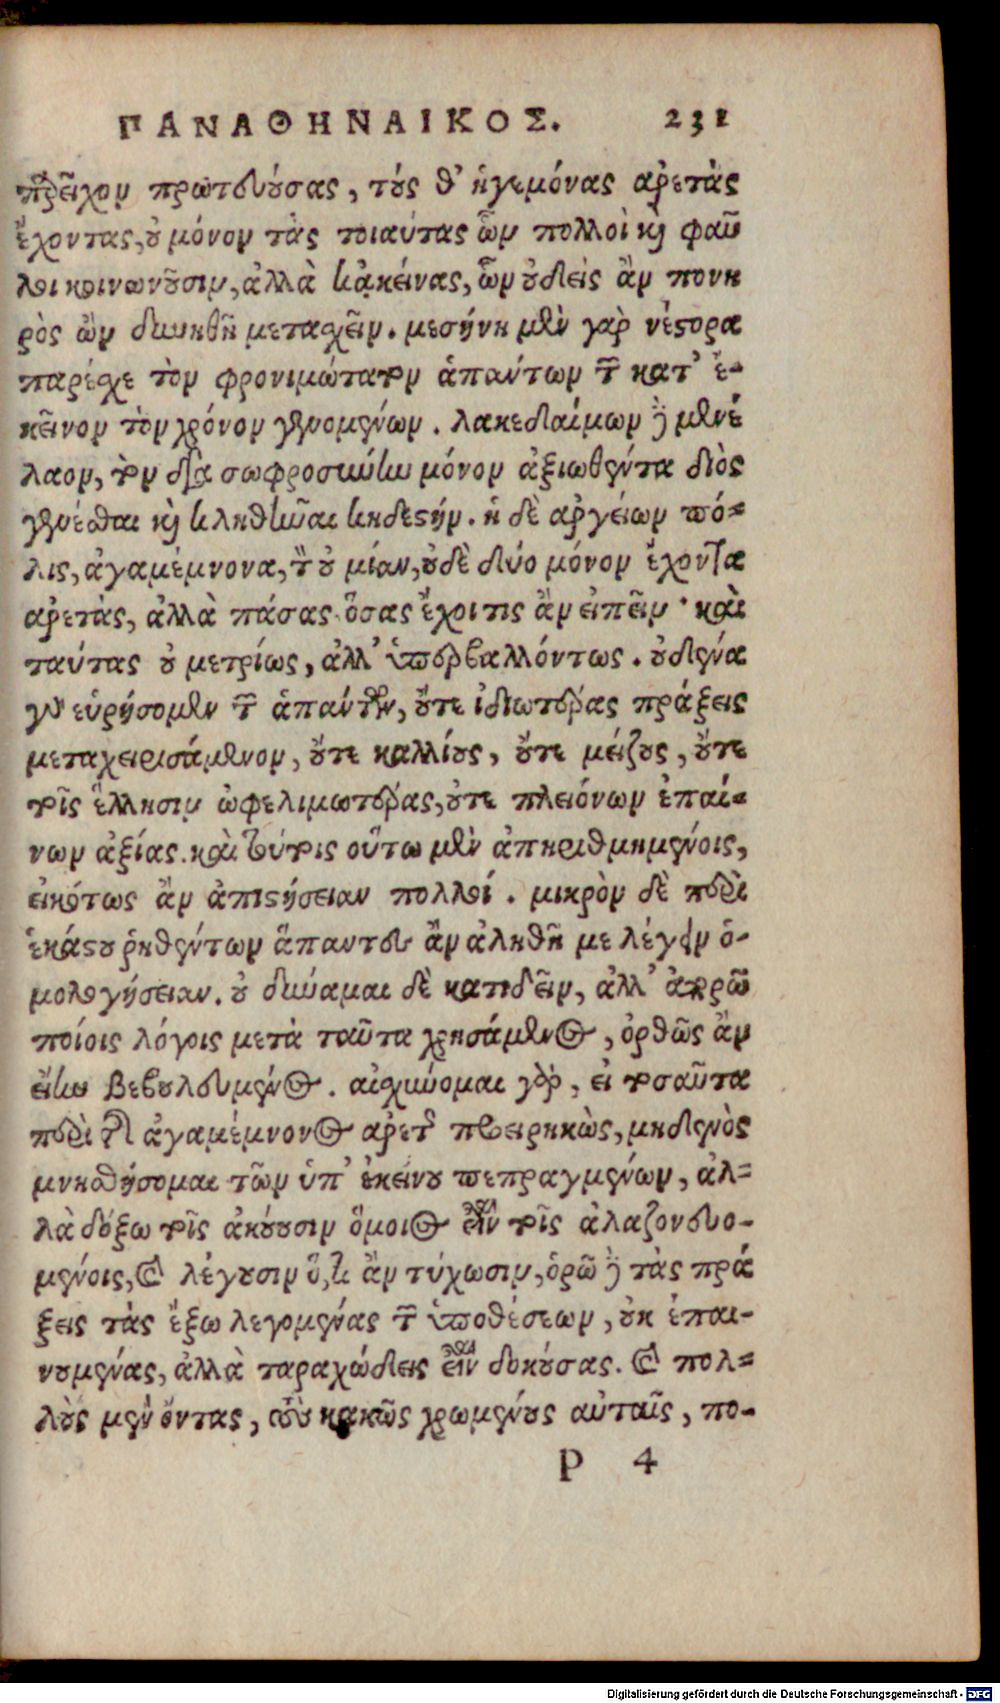 ΠΑΝΑΘΗΝΑΙΚΟΣ. 231
παρεῖχον πρωτευούσας, τούς θ' ἡγεμόνας ἀρετὰς
ἔχοντας, οὐ μόνον τὰς τοιαύτας ὧν πολλοὶ καὶ φαῦ
λοι κοινωνοῦσιν, ἀλλὰ κἀκείνας, ὧν οὐδεὶς ἂν πονη
ρὸς ὢν δυνηθῇ μετασχεῖν. μεσήνη μὲν γὰρ νέστορα
παρέσχε τὸν φρονιμώτατον ἁπάντων τῶν κατ' ἐ-
κεῖνον τὸν χρόνον γενομένων. λακεδαίμων δὲ μενέ
λαον, τὸν διὰ σωφροσύνην μόνον ἀξιωθέντα διὸς
γενέσθαι καὶ κληθῆναι κηδεστήν. ἡ δὲ ἀργείων πό-
λις, ἀγαμέμνονα, τὸν οὐ μίαν, οὐδὲ δύο μόνον ἔχοντα
ἀρετὰς, ἀλλὰ πάσας ὅσας ἔχοι τις ἂν εἰπεῖν· καὶ
ταύτας οὐ μετρίως, ἀλλ' ὑπερβαλλόντως. οὐδένα
γὰρ εὑρήσομεν τῶν ἁπάντων, οὔτε ἰδιωτέρας πράξεις
μεταχειρισάμενον, οὔτε καλλίους, οὔτε μείζους, οὔτε
τοῖς ἕλλησιν ὠφελιμωτέρας, οὔτε πλειόνων ἐπαί-
νων ἀξίας. καὶ τούτοις οὕτω μὲν ἀπηριθμημένοις,
εἰκότως ἂν ἀπιστήσειαν πολλοί. μικρὸν δὲ περὶ
ἑκάστου ῥηθέντων ἅπαντες ἂν ἀληθῆ με λέγειν ὁ-
μολογήσειαν. οὐ δύναμαι δὲ κατιδεῖν, ἀλλ' ἀπορῶ
ποίοις λόγοις μετὰ ταῦτα χρησάμενος, ὀρθῶς ἂν
εἴην βεβουλευμένος. αἰσχύνομαι γὰρ, εἰ τοσαῦτα
περὶ τῆς ἀγαμέμνονος ἀρετῆς προειρηκὼς, μηδενὸς
μνησθήσομαι τῶν ὑπ' ἐκείνου πεπραγμένων, ἀλ-
λὰ δόξω τοῖς ἀκούουσιν ὅμοιος εἶναι τοῖς ἀλαζονευο-
μένοις, καὶ λέγουσιν ὅ,τι ἂν τύχωσιν, ὁρῶ δὲ τὰς πρά
ξεις τὰς ἔξω λεγομένας τῶν ὑποθέσεων, οὐκ ἐπαι-
νουμένας, ἀλλὰ ταραχώδεις εἶναι δοκούσας. καὶ πολ-
λοὺς μὲν ὄντας, τοὺς κακῶς χρωμένους αὐταῖς, πο-
P 4
Digitalisierung gefördert durch die Deutsche Forschungsgemeinschaft - DFG